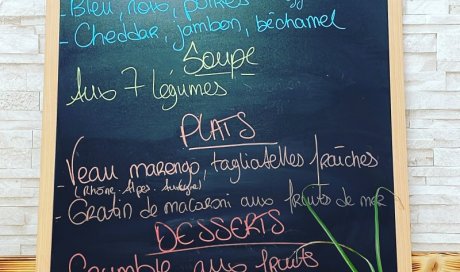 - Bleu, noix, poires
- Cheddar, jambon, béchamel
Soupe
Aux 7 légumes
PLATS
- Veau marengo, tagliatelles fraîches
(Rhône-Alpes-Auvergne)
- Gratin de macaroni aux fruits de mer
DESSERTS
Crumble aux fruits